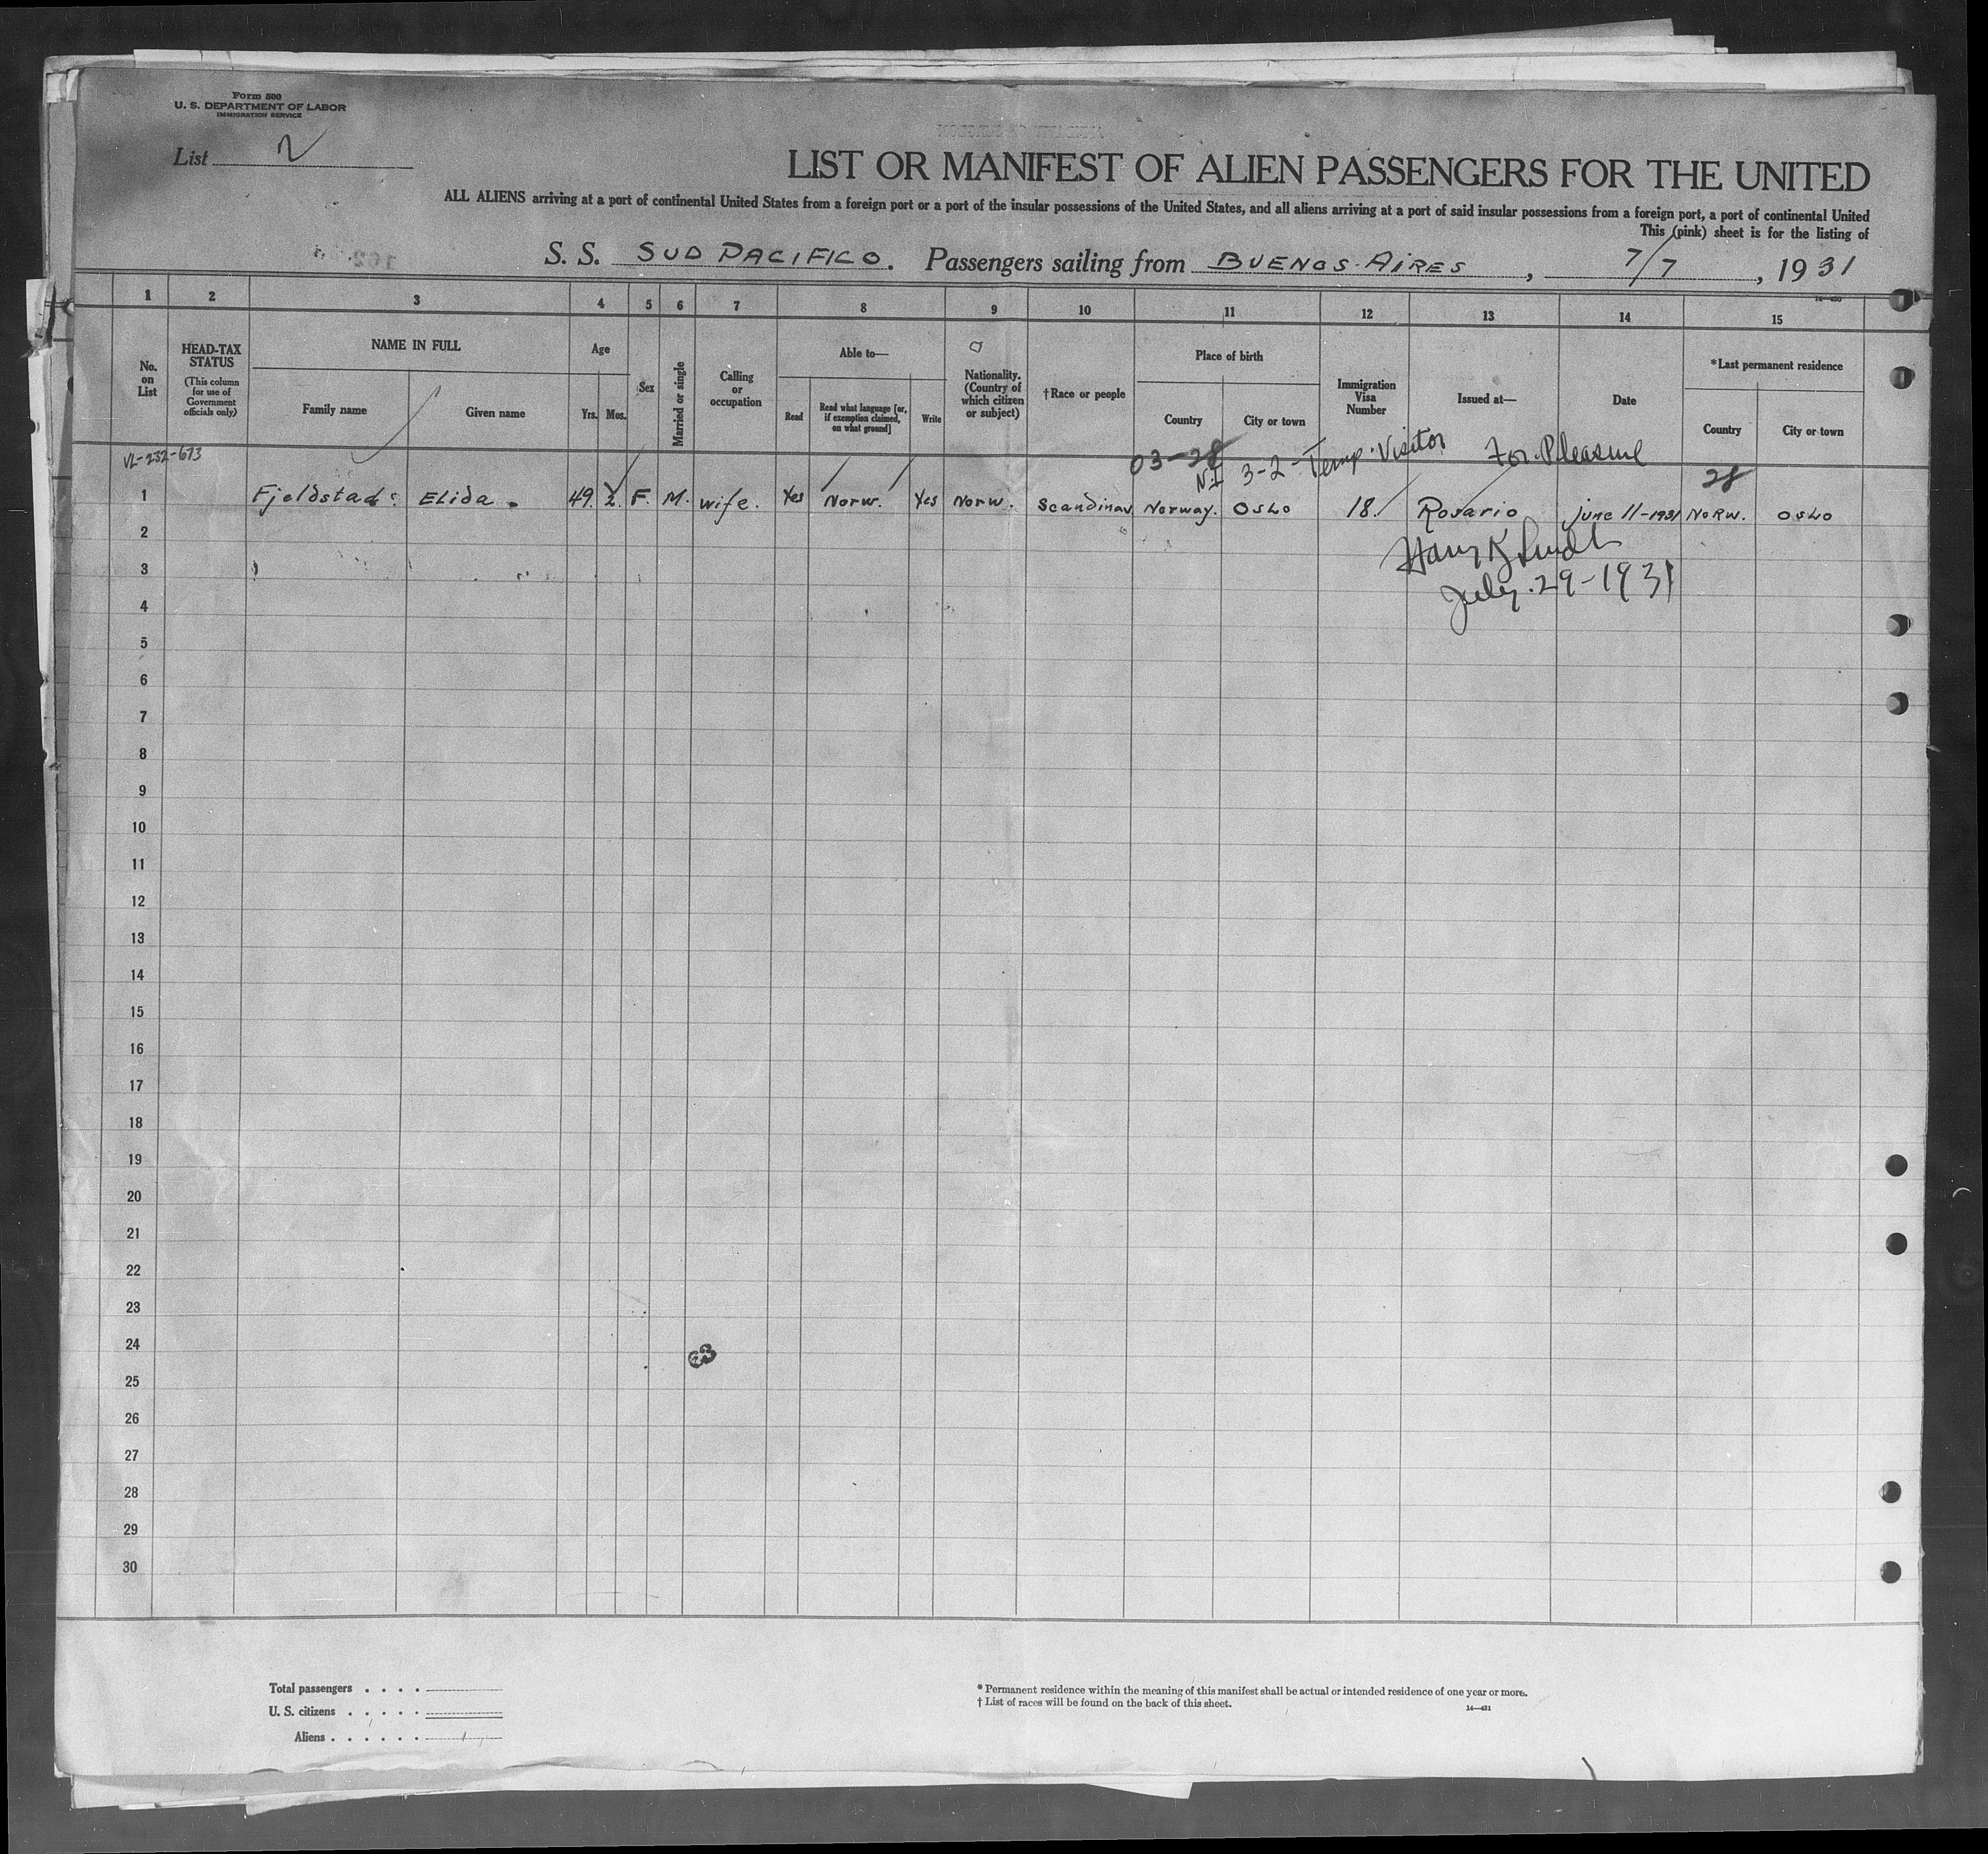 Form 500
U. S. DEPARTMENT OF LABOR
IMMIGRATION SERVICE
List 2
LIST OR MANIFEST OF ALIEN PASSENGERS FOR THE UNITED
ALL ALIENS arriving at a port of continental United States from a foreign port or a port of the insular possessions of the United States, and all aliens arriving at a port of said insular possessions from a foreign port, a port of continental United
This (pink) sheet is for the listing of
S. S. SUD PACIFICO. Passengers sailing from BUENOS-AIRES, 7/7, 1931
1 2 3 4 5 6 7 8 9 10 11 12 13 14 15
No. on List
HEAD-TAX STATUS
(This column for use of Government officials only)
NAME IN FULL
Family name
Given name
Age
Yrs. Mos.
Sex
Married or single
Calling or occupation
Able to—
Read
Read what language [or, if exemption claimed, on what ground]
Write
Nationality. (Country of which citizen or subject)
†Race or people
Place of birth
Country
City or town
Immigration Visa Number
Issued at—
Date
*Last permanent residence
Country
City or town
VL-232-673
03-28 3-2-Temp. Visitor For Pleasure 28
1 Fjeldstad Elida. 49 2 F. M. wife. Yes Norw. Yes Norw. Scandinav Norway. OSLO 18 Rosario june 11-1931 NORW. OSLO
2
July. 29-1931
3
4
5
6
7
8
9
10
11
12
13
14
15
16
17
18
19
20
21
22
23
24
25
26
27
28
29
30
63
Total passengers . . . .
U. S. citizens . . . . .
Aliens . . . . . . 1
* Permanent residence within the meaning of this manifest shall be actual or intended residence of one year or more.
† List of races will be found on the back of this sheet.
14—431